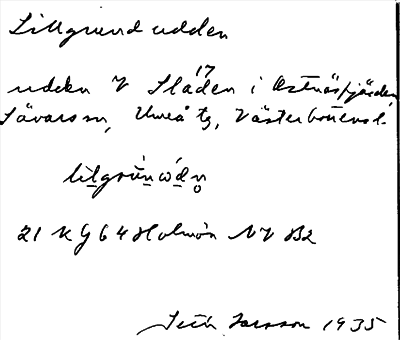 Lillgrundudden
udden V Sladen i Ostnäsfjärden
17
Sävars sn, Umeå tg, Västerbottens l.
lìlgrùnωdn̥
21 K 9 64 Holmön NV B2
Seth Larsson 1935